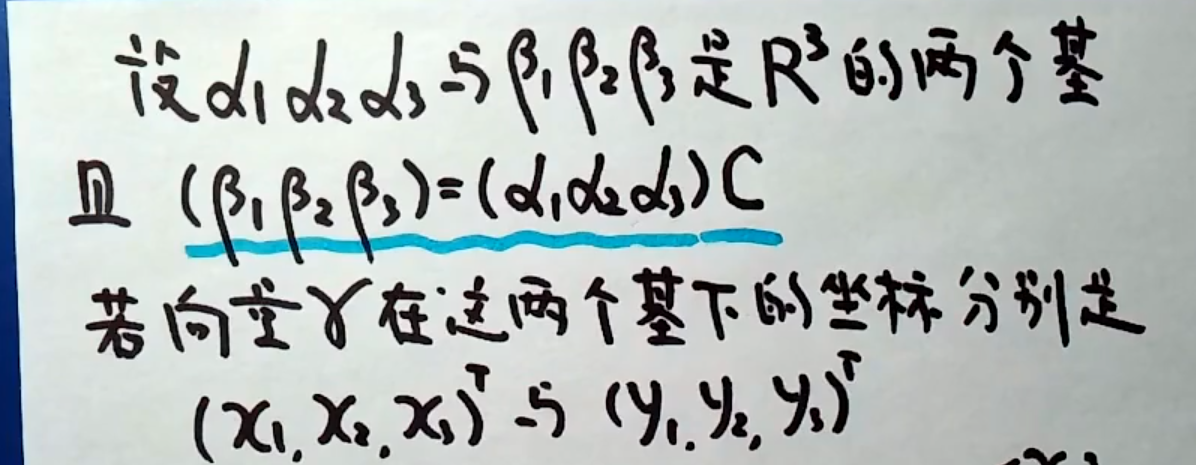 设α₁α₂α₃与β₁β₂β₃是R³的两个基
且 (β₁β₂β₃)=(α₁α₂α₃)C
若向量γ在这两个基下的坐标分别是
(x₁,x₂,x₃)ᵀ与 (y₁,y₂,y₃)ᵀ